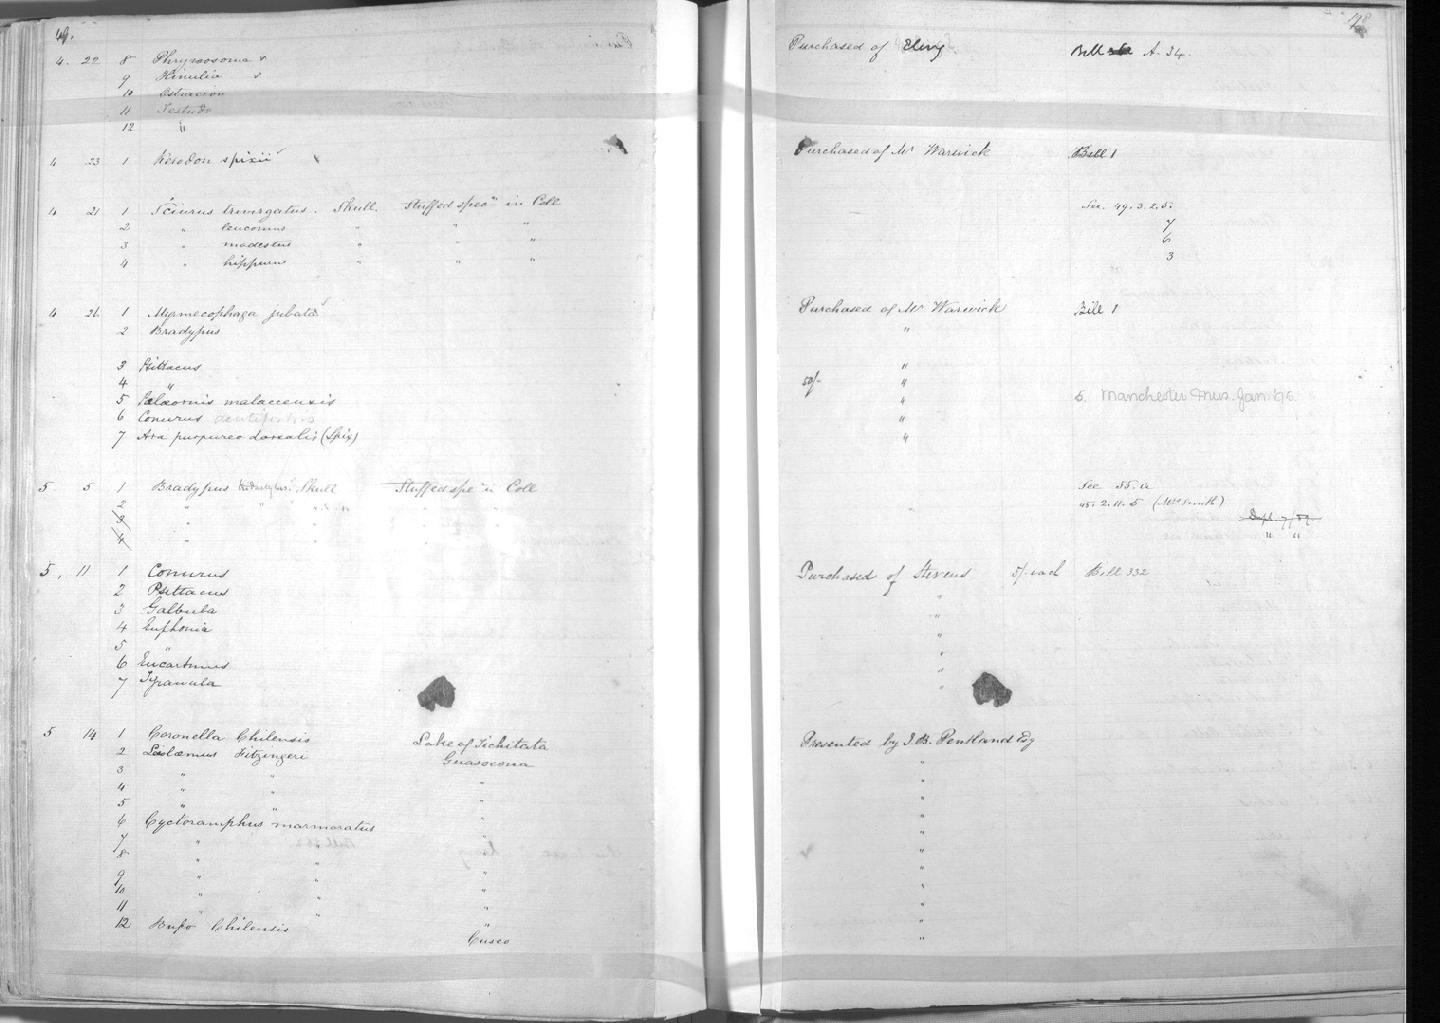 49.
4. 22 8 Phrynosoma
9 Hinulia
10 Ostracion
11 Testudo
12 "
Purchased of
Bill A. 34.
4 23 1 Kerodon spixii
Purchased of Mr Warwick Bill 1
4 21 1 Sciurus Skull. Stuffed specn in Coll
See. 49. 3. 2. 5.
2 " leucomus " " "
7
3 " modestus " " "
6
4 " hippurus " " "
3
4 26 1 Myrmecophaga jubata
Purchased of Mr Warwick Bill 1
2 Bradypus
"
3 Psittacus
"
4 "
50/- "
5 Palæornis malaccensis
" 5. Manchester Mus. Jan.
6 Conurus
"
7 Ara purpureo dorsalis (Spix)
"
5 5 1 Bradypus Skull Stuffed spe in Coll
See 55. a
2 " " "
45. 2. 11. 5 (Mr Smith)
3 " "
4 " "
" "
5. 11 1 Conurus
Purchased of Stevens 5/- each Bill 332
2 Psittacus
"
3 Galbula
"
4 Euphonia
"
5 "
"
6 Eucarthmus
"
7 Tyranula
"
5 14 1 Coronella Chilensis Lake of Tichitata
Presented by J. B. Pentland Esq
2 Leiolæmus Fitzingeri Guasacona
"
3 " " "
"
4 " " "
"
5 " " "
"
6 Cyctoramphus marmoratus "
"
7 " " "
"
8 " " "
"
9 " " "
"
10 " " "
"
11 " " "
"
12 Bufo Chilensis Cusco
"